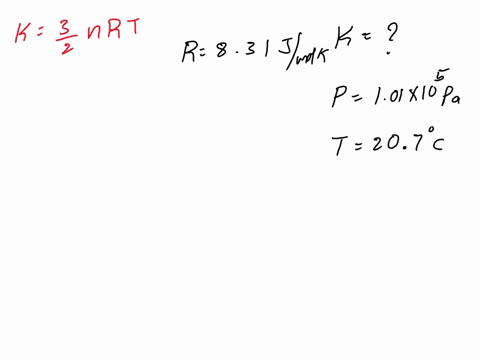 K = 3/2 nRT
R = 8.31 J/mol K
K = ?
P = 1.01 × 10⁵ Pa
T = 20.7°C